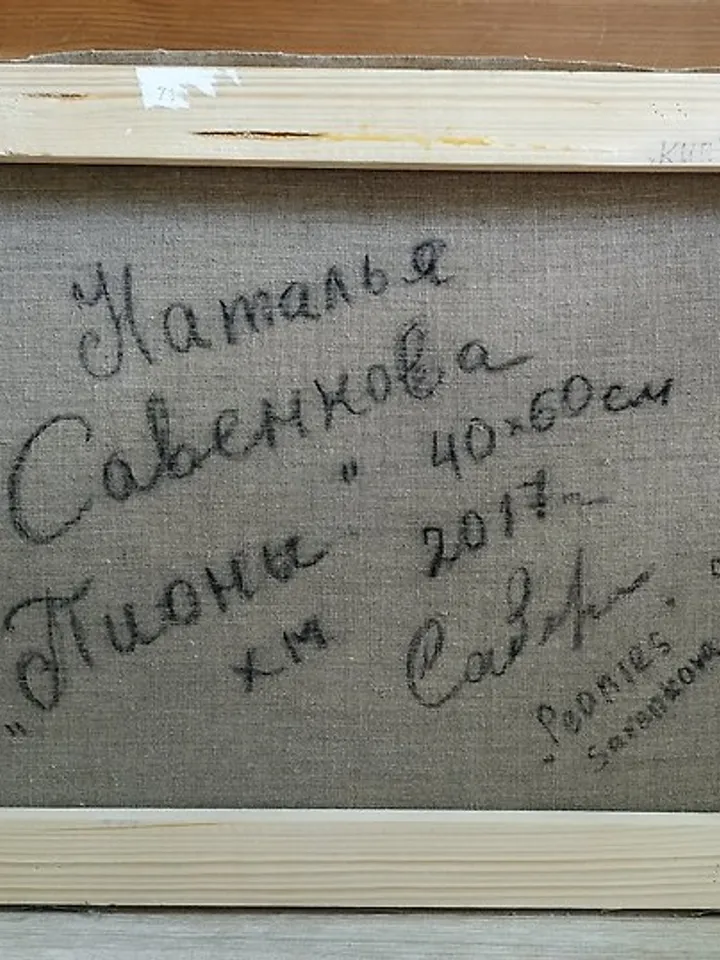 Наталья
Савенкова
"Пионы" 40х60см
хм 2017г.
"Peonies"
Savenkova